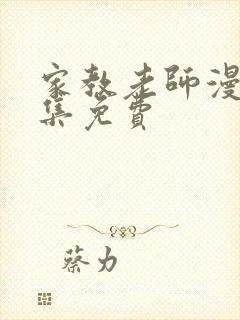 家教老师漫
集免費
蔡力